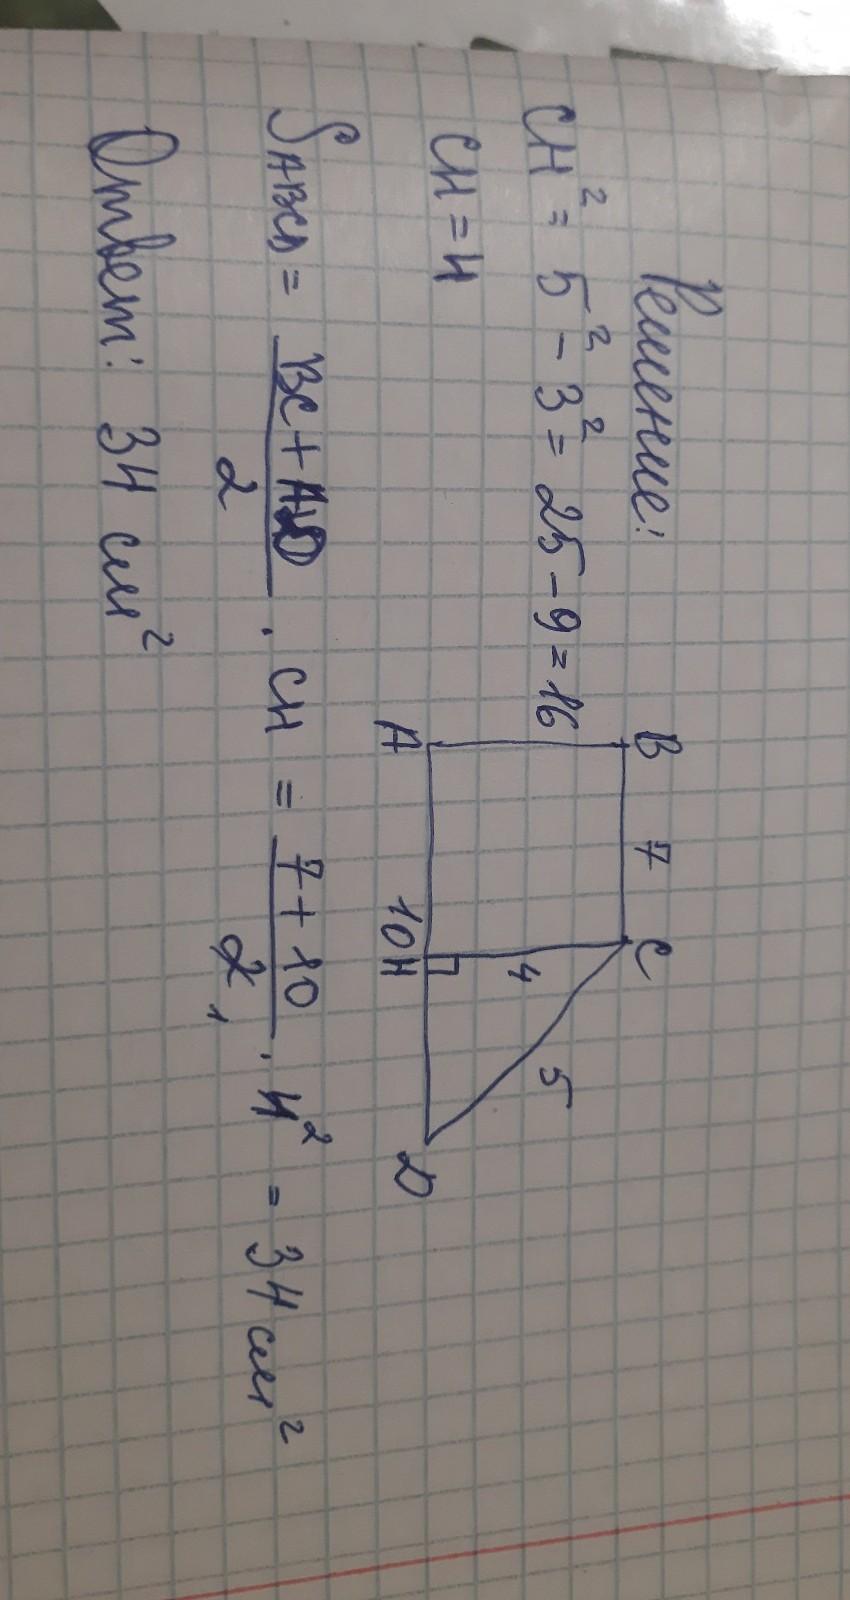 Решение:
B 7 C
CH² = 5² - 3² = 25 - 9 = 16
4 5
CH = 4
A 10 H D
SABCD = BC + AD / 2 · CH = 7 + 10 / 2 1 · 4 2 = 34 см²
Ответ: 34 см²